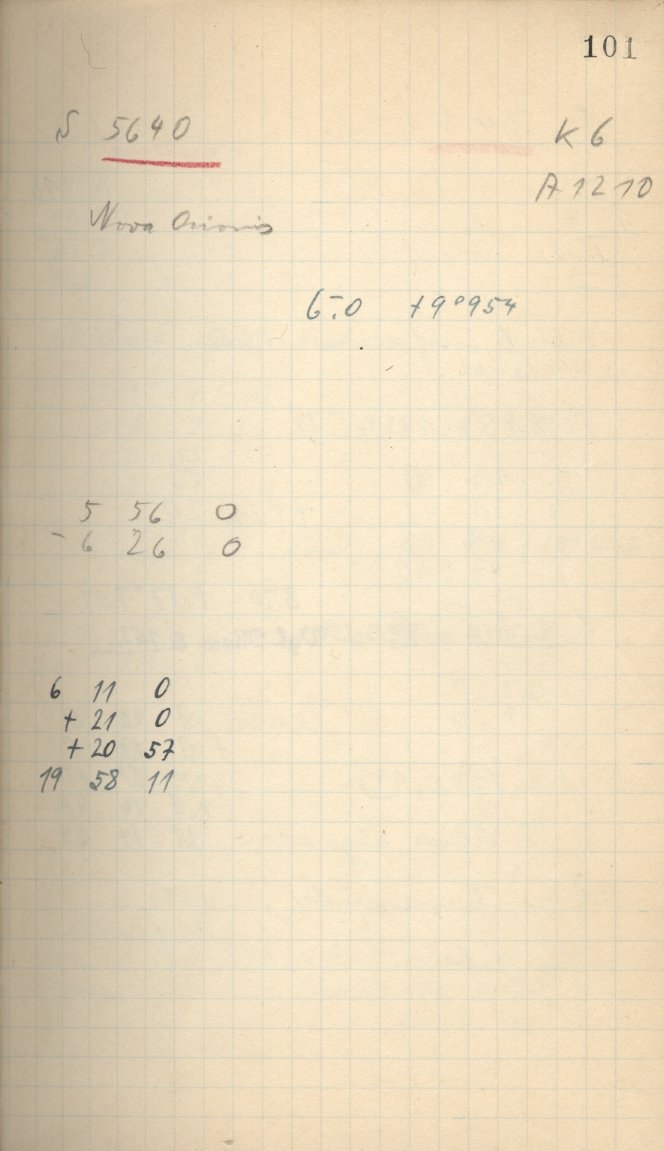 101
S 5640
K 6
A 1210
Nova Orionis
6.0 +9°954
5 56 0
- 6 26 0
6 11 0
+ 21 0
+ 20 57
19 58 11